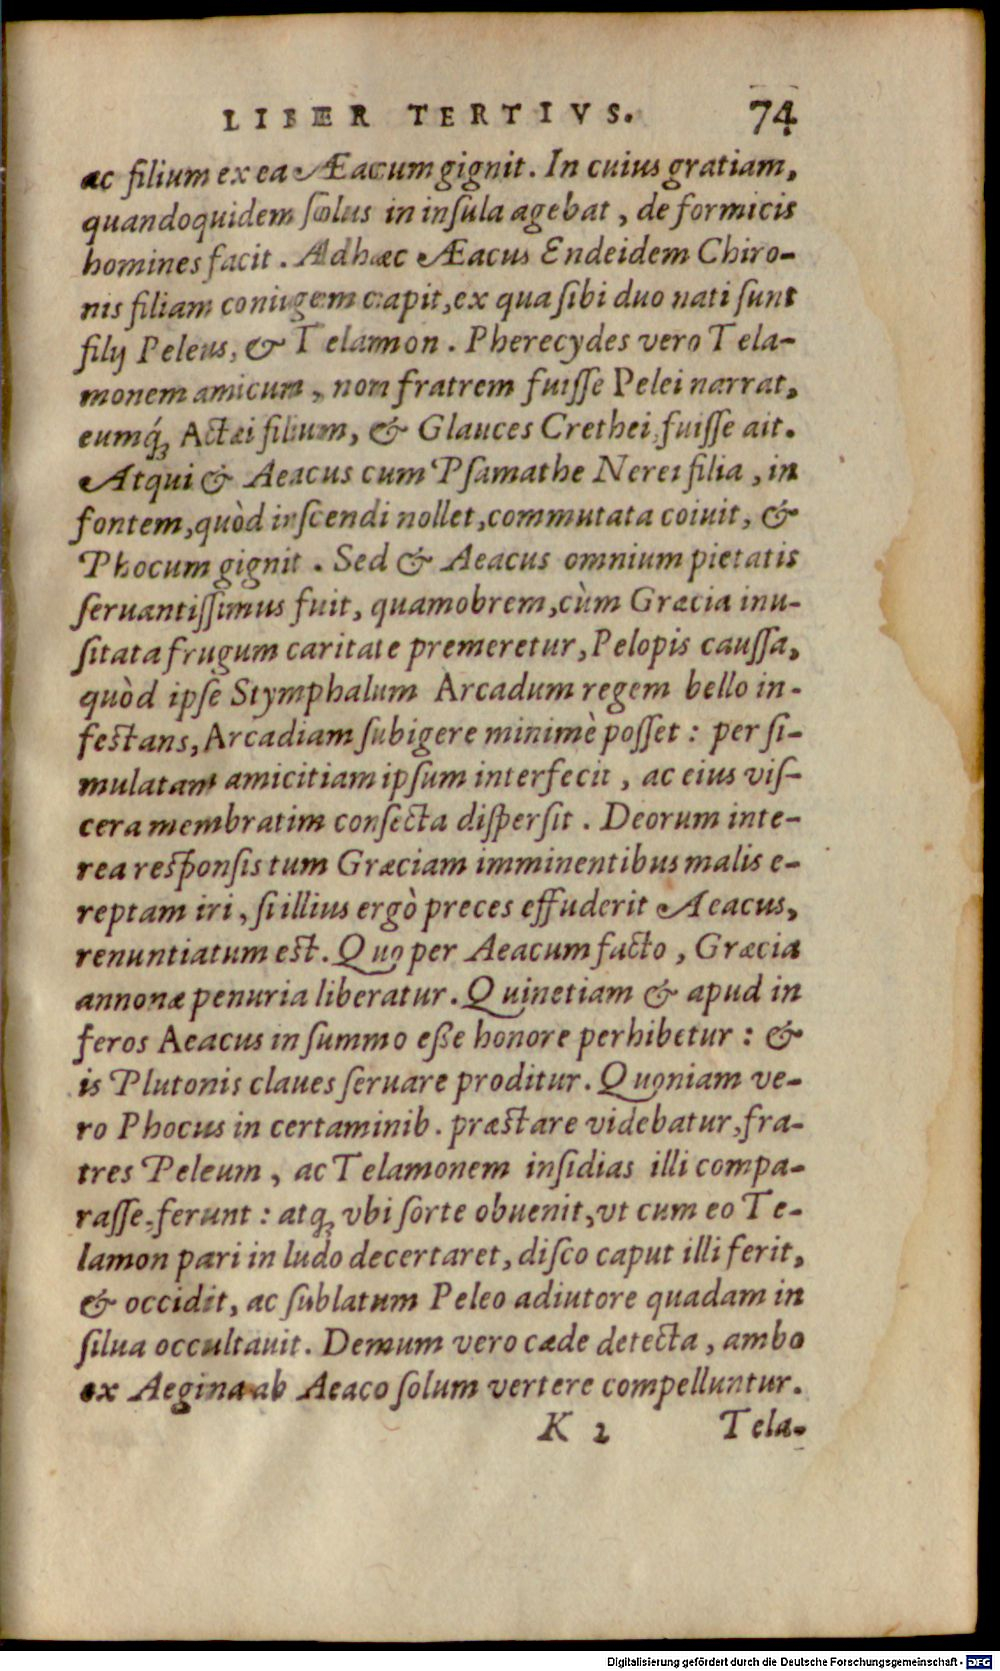 LIBER TERTIVS. 74
ac filium ex ea Æacum gignit. In cuius gratiam,
quandoquidem ſolus in inſula agebat, de formicis
homines facit. Adhæc Æacus Endeidem Chiro-
nis filiam coniugem capit, ex qua ſibi duo nati ſunt
filij Peleus, & Telamon. Pherecydes vero Tela-
monem amicum, non fratrem fuiſſe Pelei narrat,
eumq́; Actæi filium, & Glauces Crethei, fuiſſe ait.
Atqui & Aeacus cum Pſamathe Nerei filia, in
fontem, quòd inſcendi nollet, commutata coiuit, &
Phocum gignit. Sed & Aeacus omnium pietatis
ſeruantiſſimus fuit, quamobrem, cùm Græcia inu-
ſitata frugum caritate premeretur, Pelopis cauſſa,
quòd ipſe Stymphalum Arcadum regem bello in-
feſtans, Arcadiam ſubigere minimè poſſet: per ſi-
mulatam amicitiam ipſum interfecit, ac eius viſ-
cera membratim conſecta diſperſit. Deorum inte-
rea reſponſis tum Græciam imminentibus malis e-
reptam iri, ſi illius ergò preces effuderit Aeacus,
renuntiatum eſt. Quo per Aeacum facto, Græcia
annonæ penuria liberatur. Quinetiam & apud in
feros Aeacus in ſummo eſſe honore perhibetur: &
is Plutonis claues ſeruare proditur. Quoniam ve-
ro Phocus in certaminib. præſtare videbatur, fra-
tres Peleum, ac Telamonem inſidias illi compa-
raſſe, ferunt: atq; vbi ſorte obuenit, vt cum eo Te-
lamon pari in ludo decertaret, diſco caput illi ferit,
& occidit, ac ſublatum Peleo adiutore quadam in
ſilua occultauit. Demum vero cæde detecta, ambo
ex Aegina ab Aeaco ſolum vertere compelluntur.
K 2 Tela-
Digitalisierung gefördert durch die Deutsche Forschungsgemeinschaft - DFG